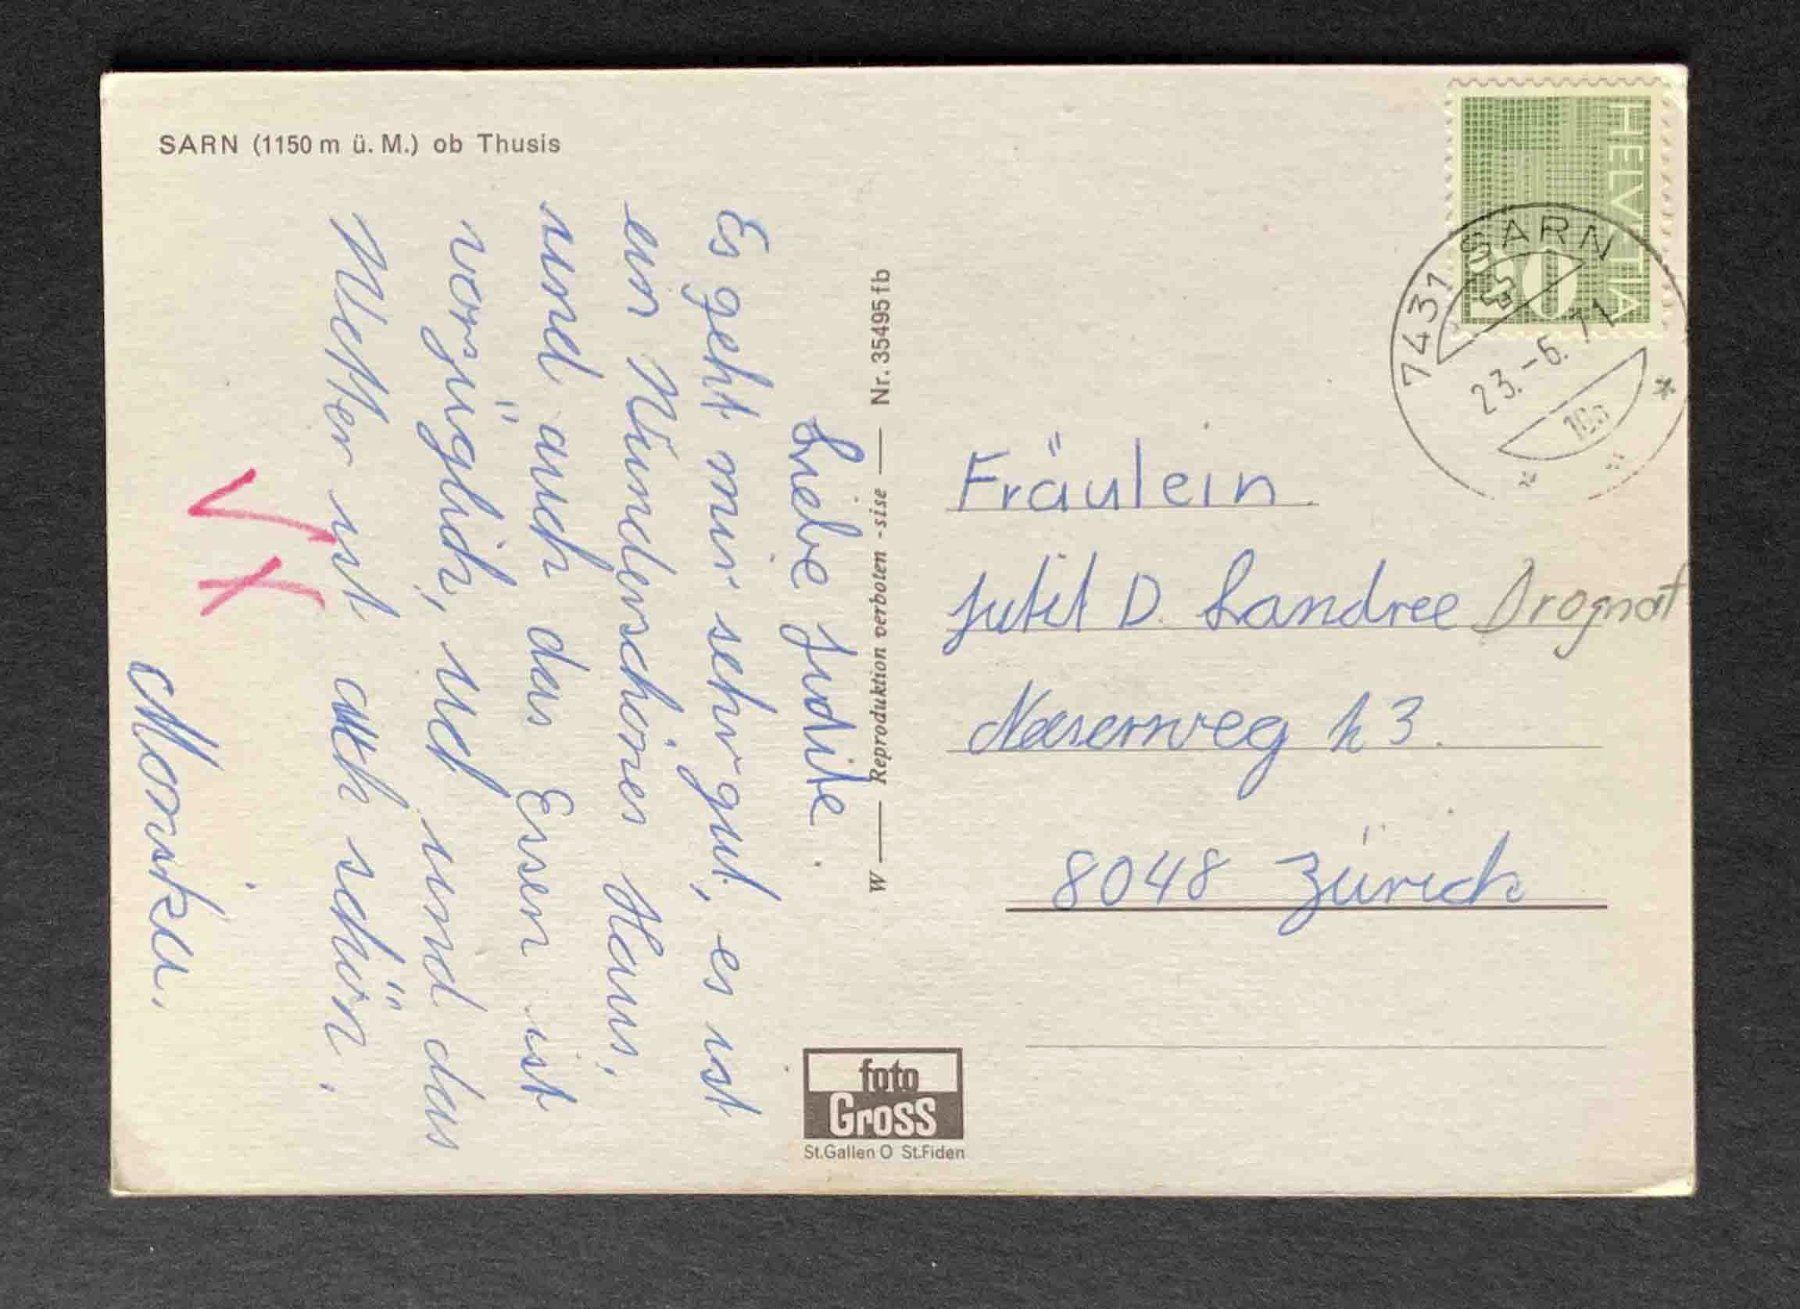 SARN (1150 m ü. M.) ob Thusis
Liebe Judite.
Es geht mir sehr gut, es ist
ein Wunderschönes Haus,
und auch das Essen ist
vorzüglich, und das
Wetter ist auch schön.
Monika.
W — Reproduktion verboten - sise — Nr. 35495 fb
HELVETIA
10
7431 SARN
23.-6.71
Fräulein
Jutit D. Landree Drognat
h 3.
8048 Zürich
foto
Gross
St.Gallen O St.Fiden